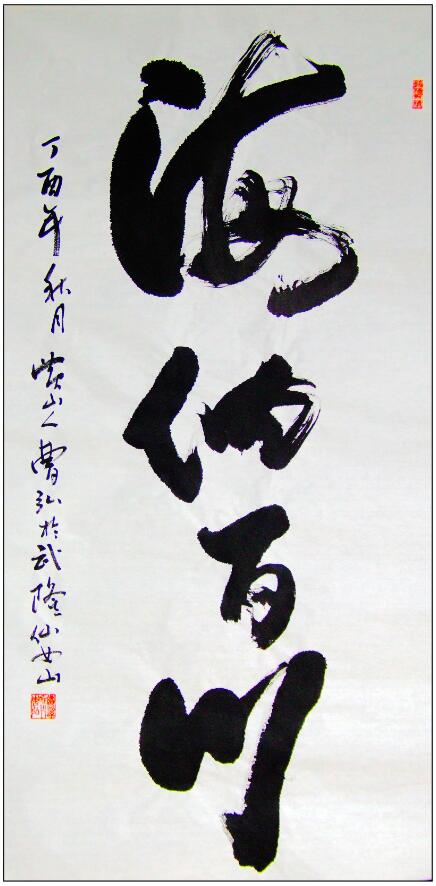 海纳百川
丁酉年秋月黄山人曹弘於武隆仙女山